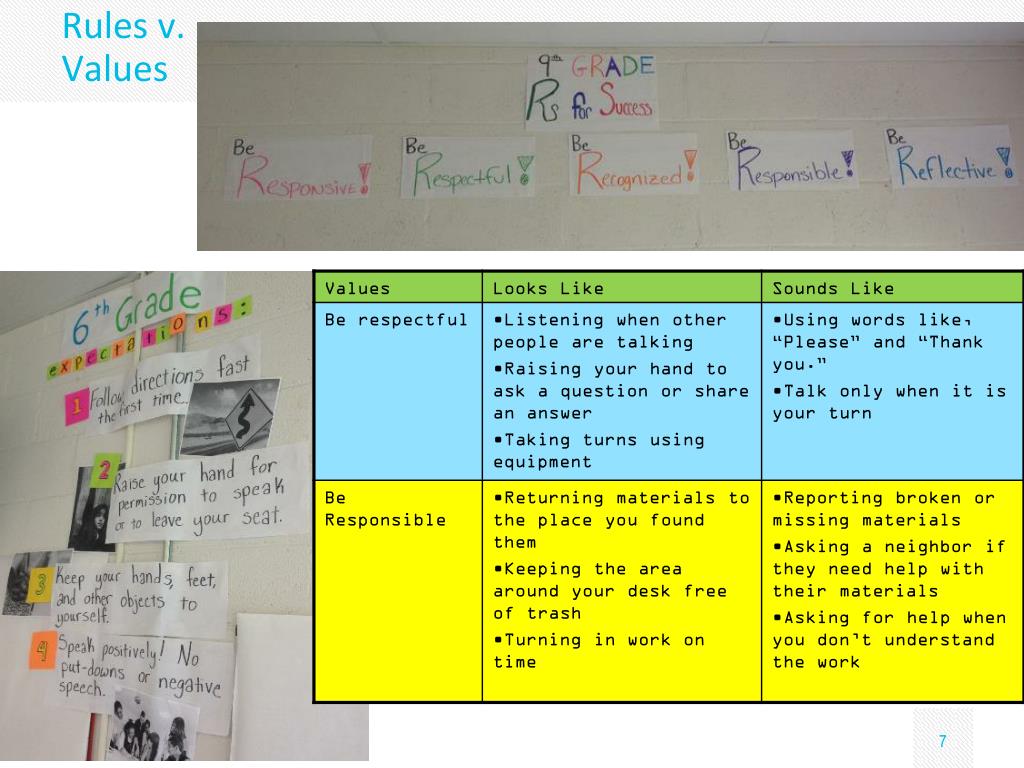 Rules v.
Values
9th GRADE
Rs for Success
Be
Responsive!
Be
Respectful!
Be
Recognized!
Be
Responsible!
Be
Reflective!
6th Grade
expectations:
1 Follow directions fast
the first time..
2 Raise your hand for
permission to speak
or to leave your seat.
3 Keep your hands, feet,
and other objects to
yourself.
4 Speak positively! No
put-downs or negative
speech.
Values
Looks Like
Sounds Like
Be respectful
•Listening when other
people are talking
•Raising your hand to
ask a question or share
an answer
•Taking turns using
equipment
•Using words like,
“Please” and “Thank
you.”
•Talk only when it is
your turn
Be
Responsible
•Returning materials to
the place you found
them
•Keeping the area
around your desk free
of trash
•Turning in work on
time
•Reporting broken or
missing materials
•Asking a neighbor if
they need help with
their materials
•Asking for help when
you don’t understand
the work
7